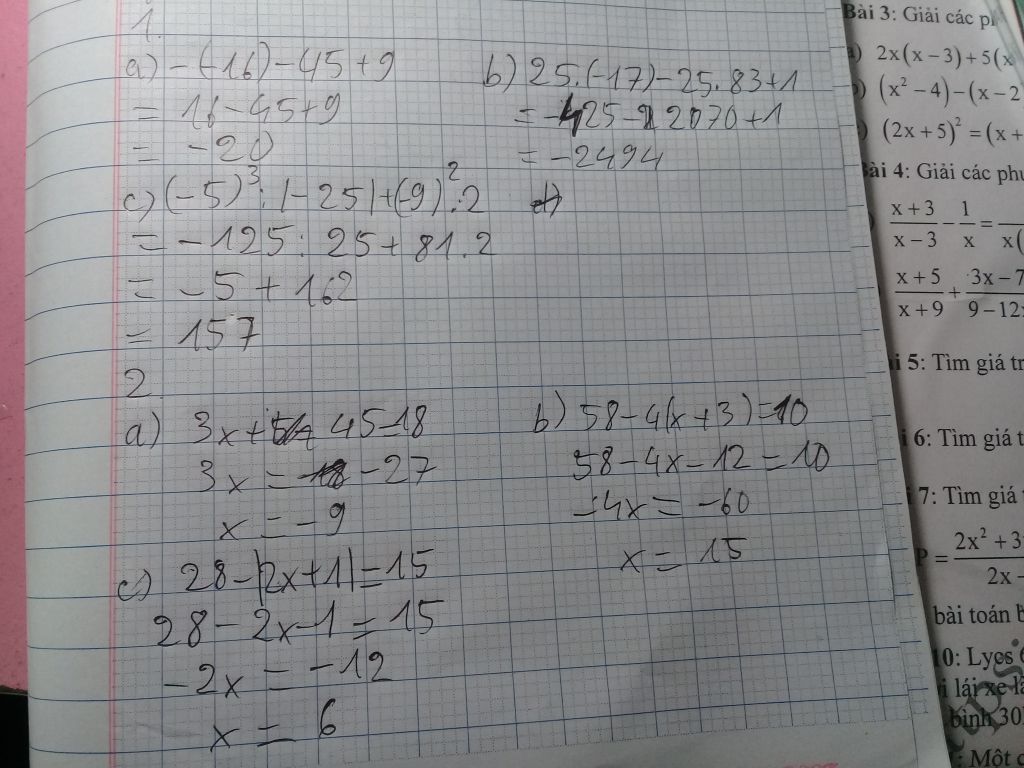 1.
a) -(-16)-45+9
= 16-45+9
= -20
b) 25.(-17)-25.83+1
= -425-2070+1
= -2494
c) (-5)³:|-25|+(-9)².2
= -125:25+81.2
= -5+162
= 157
2.
a) 3x+45=18
3x = -27
x = -9
b) 58-4(x+3)=10
58-4x-12=10
-4x = -60
x = 15
c) 28-|2x+1|=15
28-2x-1=15
-2x = -12
x = 6
Bài 3: Giải các
2x(x-3)+5(x
(x²-4)-(x-2
(2x+5)²=(x+
Bài 4: Giải các
x+3/x-3 - 1/x = /x(
x+5/x+9 + 3x-7/9-12
5: Tìm giá
6: Tìm giá
7: Tìm giá
P = 2x²+3/2x-
bài toán
10: Lyes
lái xe
bình 30
: Một